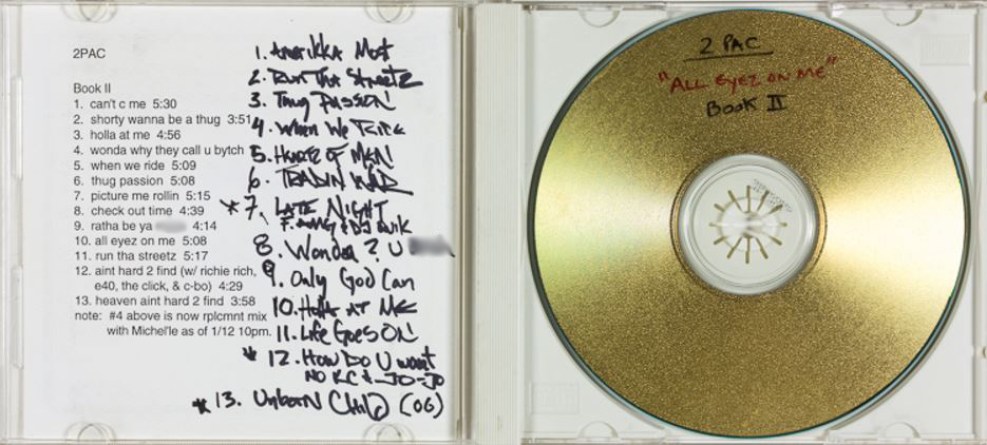 2PAC
Book II
1. can't c me 5:30
2. shorty wanna be a thug 3:51
3. holla at me 4:56
4. wonda why they call u bytch
5. when we ride 5:09
6. thug passion 5:08
7. picture me rollin 5:15
8. check out time 4:39
9. ratha be ya 4:14
10. all eyez on me 5:08
11. run tha streetz 5:17
12. aint hard 2 find (w/ richie rich,
e40, the click, & c-bo) 4:29
13. heaven aint hard 2 find 3:58
note: #4 above is now rplcmnt mix
with Michel'le as of 1/12 10pm.
1. Amerikka Most
2. Run Tha Streetz
3. Thug Passion!
4. When We Ride
5. of Men!
6. TRADIN WAR
*7. LATE NIGHT
F. & DJ Quik
8. Wonda? U
9. Only God Can
10. Holla AT Me
11. Life Goes On!
* 12. How Do U want
NO KC & JO-JO
* 13. Unborn Child (OG)
2 PAC
"ALL EYEZ ON ME"
Book II